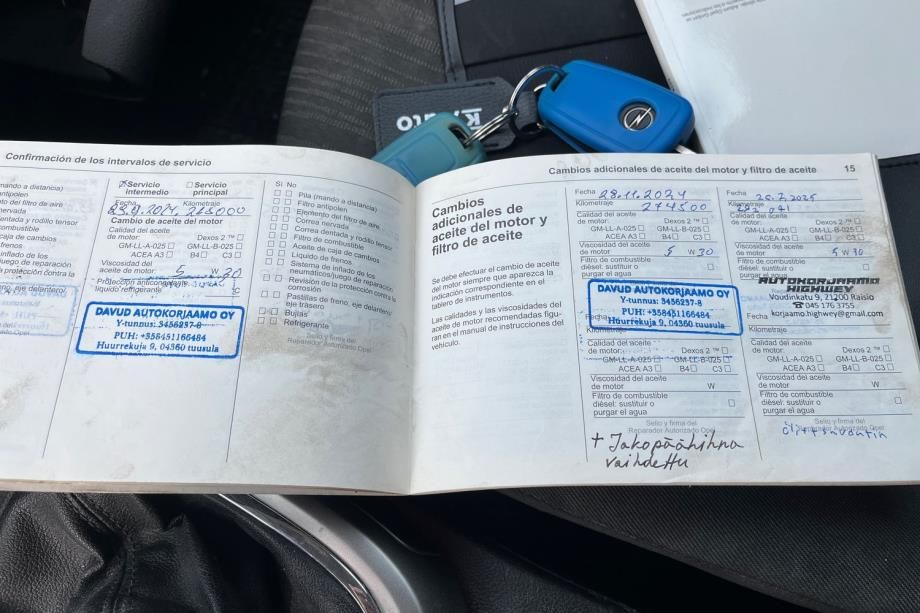 Confirmación de los intervalos de servicio
mando a distancia)
antipolen
ento del filtro de aire
nervada
dentada y rodillo tensor
combustible
caja de cambios
frenos
inflado de los
juego de reparación
protección contra la
eje delantero/
Servicio intermedio
Servicio principal
Fecha Kilometraje
215000
Cambio de aceite de motor
Calidad del aceite
de motor Dexos 2 ™
GM-LL-A-025 GM-LL-B-025
ACEA A3 B4 C3
Viscosidad del
aceite de motor: 5 W 30
Protección anticongelante
líquido refrigerante
DAVUD AUTOKORJAAMO OY
Y-tunnus: 3456237-8
PUH: +358451166484
Huurrekuja 9, 04360 tuusula
Sí No
Pila (mando a distancia)
Filtro antipolen
Elemento del filtro de aire
Correa nervada
Correa dentada y rodillo tensor
Filtro de combustible
Aceite de caja de cambios
Líquido de frenos
Sistema de inflado de los
neumáticos/juego de reparación
Revisión de la protección contra la
corrosión
Pastillas de freno, eje delantero/
eje trasero
Bujías
Refrigerante
Sello y firma del
Reparador Autorizado Opel
Cambios adicionales de aceite del motor y filtro de aceite 15
Cambios
adicionales de
aceite del motor y
filtro de aceite
Se debe efectuar el cambio de aceite
de motor siempre que aparezca la
indicación correspondiente en el
tablero de instrumentos.
Las calidades y las viscosidades del
aceite de motor recomendadas figu-
ran en el manual de instrucciones del
vehículo.
Fecha 28.11.2024
Kilometraje 274500
Calidad del aceite
de motor Dexos 2 ™
GM-LL-A-025 GM-LL-B-025
ACEA A3 B4 C3
Viscosidad del aceite
de motor 5 W 30
Filtro de combustible
diésel: sustituir o
purgar el agua
DAVUD AUTOKORJAAMO OY
Y-tunnus: 3456237-8
PUH: +358451166484
Huurrekuja 9, 04360 tuusula
Fecha
Kilometraje
Calidad del aceite
de motor Dexos 2 ™
GM-LL-A-025 GM-LL-B-025
ACEA A3 B4 C3
Viscosidad del aceite
de motor W
Filtro de combustible
diésel: sustituir o
purgar el agua
Sello y firma del
Reparador Autorizado Opel
+ Jakopäähihna
vaihdettu
Fecha
Kilometraje
Calidad del aceite
de motor Dexos 2 ™
GM-LL-A-025 GM-LL-B-025
ACEA A3 B4 C3
Viscosidad del aceite
de motor 5 W 30
Filtro de combustible
diésel: sustituir o
purgar el agua
AUTOKORJAAMO
HIGHWEY
Voudinkatu 9, 21200 Raisio
☎ 045 176 3755
korjaamo.highwey@gmail.com
Fecha
Kilometraje
Calidad del aceite
de motor Dexos 2 ™
GM-LL-A-025 GM-LL-B-025
ACEA A3 B4 C3
Viscosidad del aceite
de motor W
Filtro de combustible
diésel: sustituir o
purgar el agua
Sello y firma del
Reparador Autorizado Opel